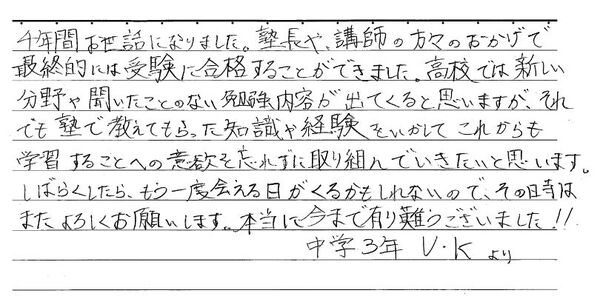 4年間お世話になりました。塾長や、講師の方々のおかげで
最終的には受験に合格することができました。高校では新しい
分野や聞いたことのない勉強内容が出てくると思いますが、それ
でも塾で教えてもらった知識や経験をいかしてこれからも
学習することへの意欲を忘れずに取り組んでいきたいと思います。
しばらくしたら、もう一度会える日がくるかもしれないので、その時は
またよろしくお願いします。本当に今まで有り難うございました!!
中学3年 V・Kより